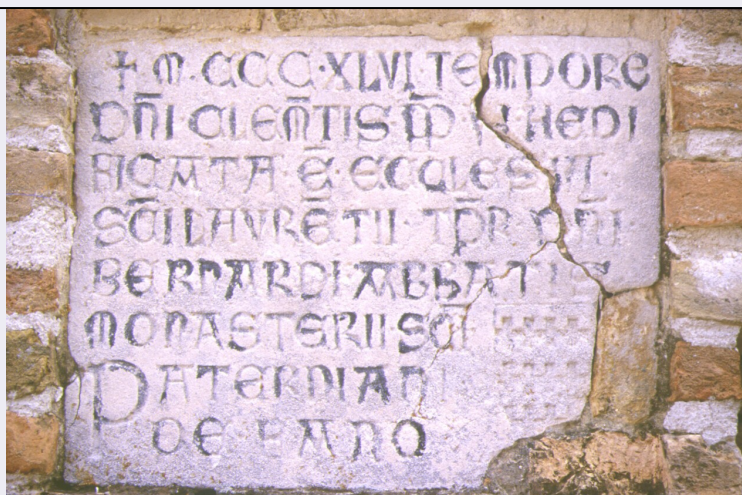 + M·CCCC·XLVI·TEMPORE
DN̄I·CLEM̄TIS·P̄P·VI·HEDI
FICATA·Ē·ECCLESIA·
SC̄I LAVRĒTII·TP̄R·DN̄I·
BERNARDI·ABBATIS
MONASTERII·SC̄I
PATERNIANI
DE FANO